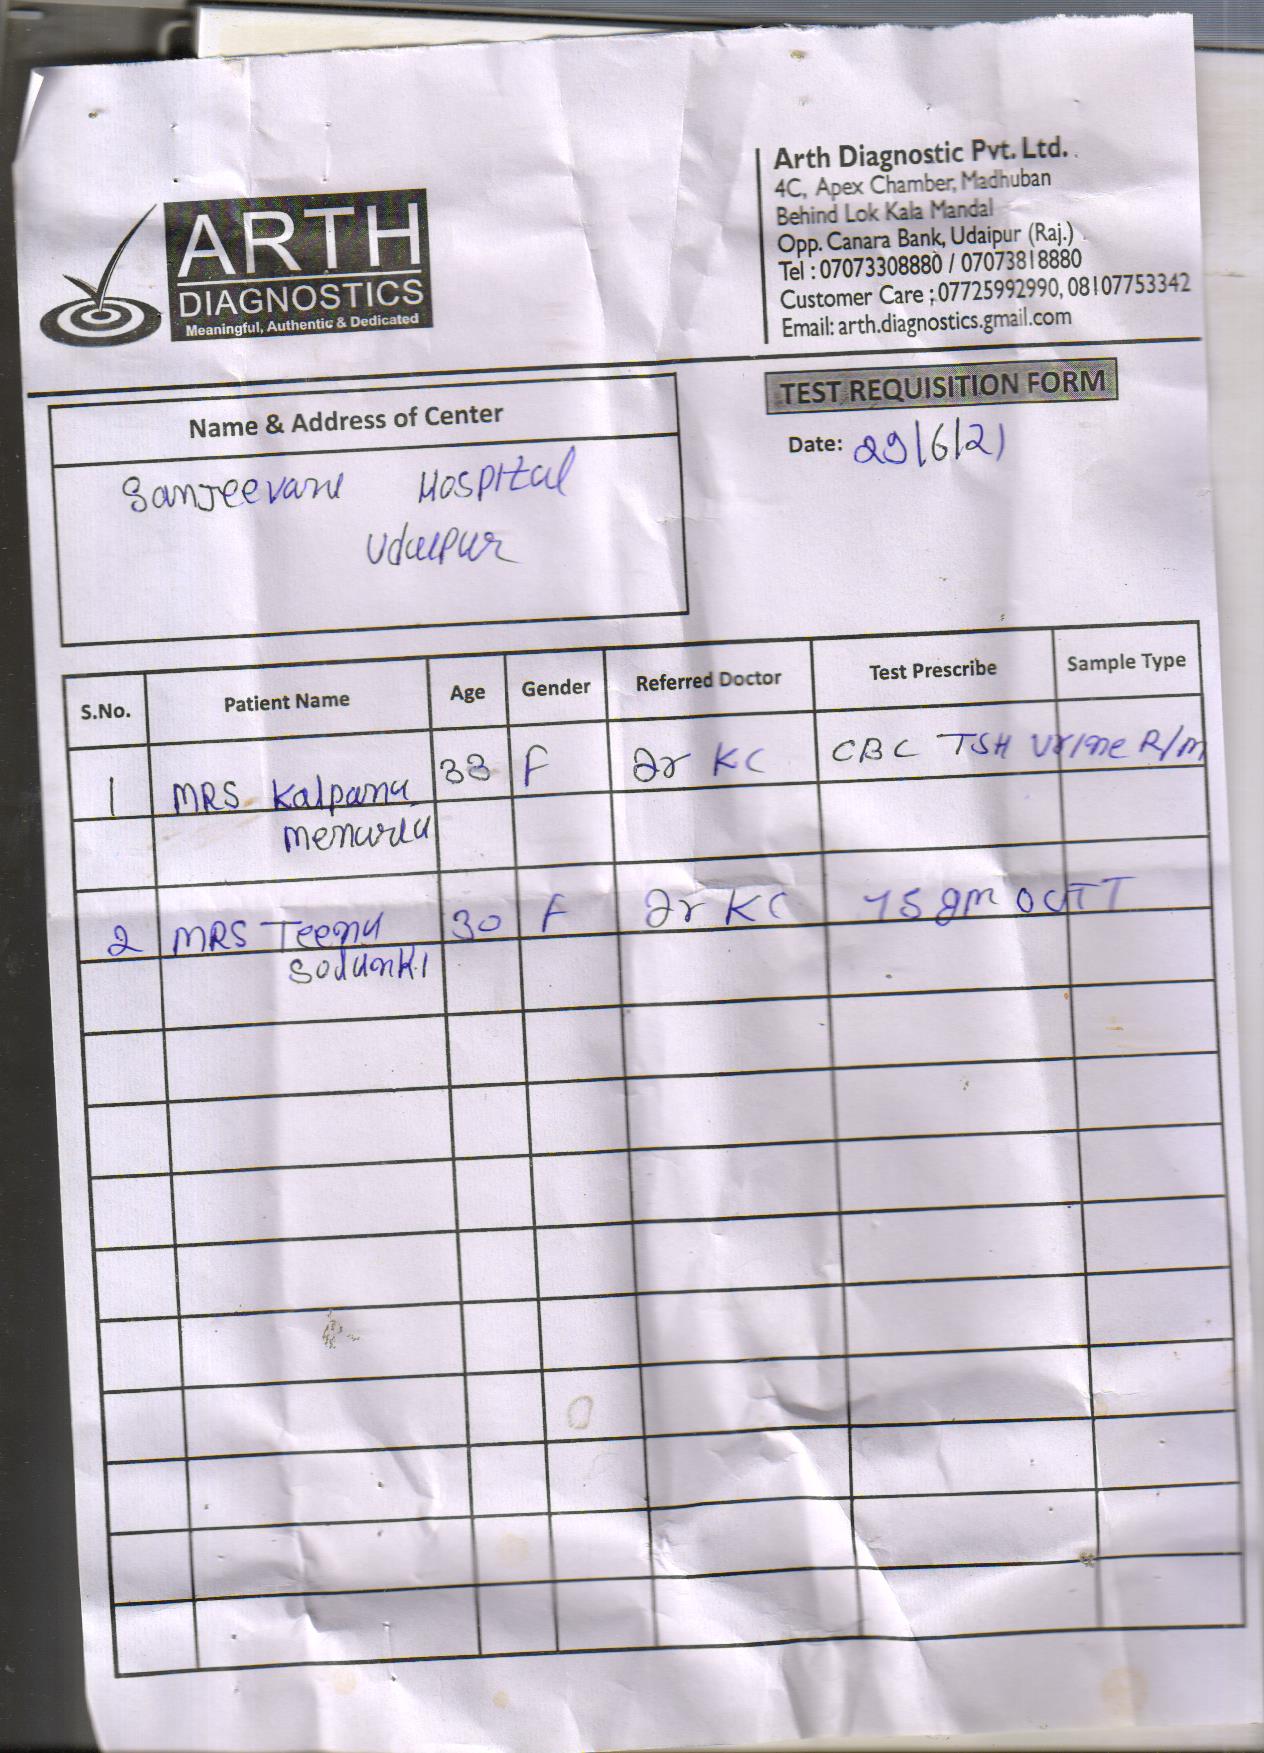 ARTH
DIAGNOSTICS
Meaningful, Authentic & Dedicated
Arth Diagnostic Pvt. Ltd.
4C, Apex Chamber, Madhuban
Behind Lok Kala Mandal
Opp. Canara Bank, Udaipur (Raj.)
Tel : 07073308880 / 07073818880
Customer Care : 07725992990, 08107753342
Email: arth.diagnostics.gmail.com
TEST REQUISITION FORM
Date: 29/6/21
Name & Address of Center
Sanjeevani Hospital
Udaipur
S.No. Patient Name Age Gender Referred Doctor Test Prescribe Sample Type
1 MRS Kalpana 33 F Dr KC CBC TSH Urine R/M
Menaria
2 MRS Teena 30 F Dr KC 75 gm OGTT